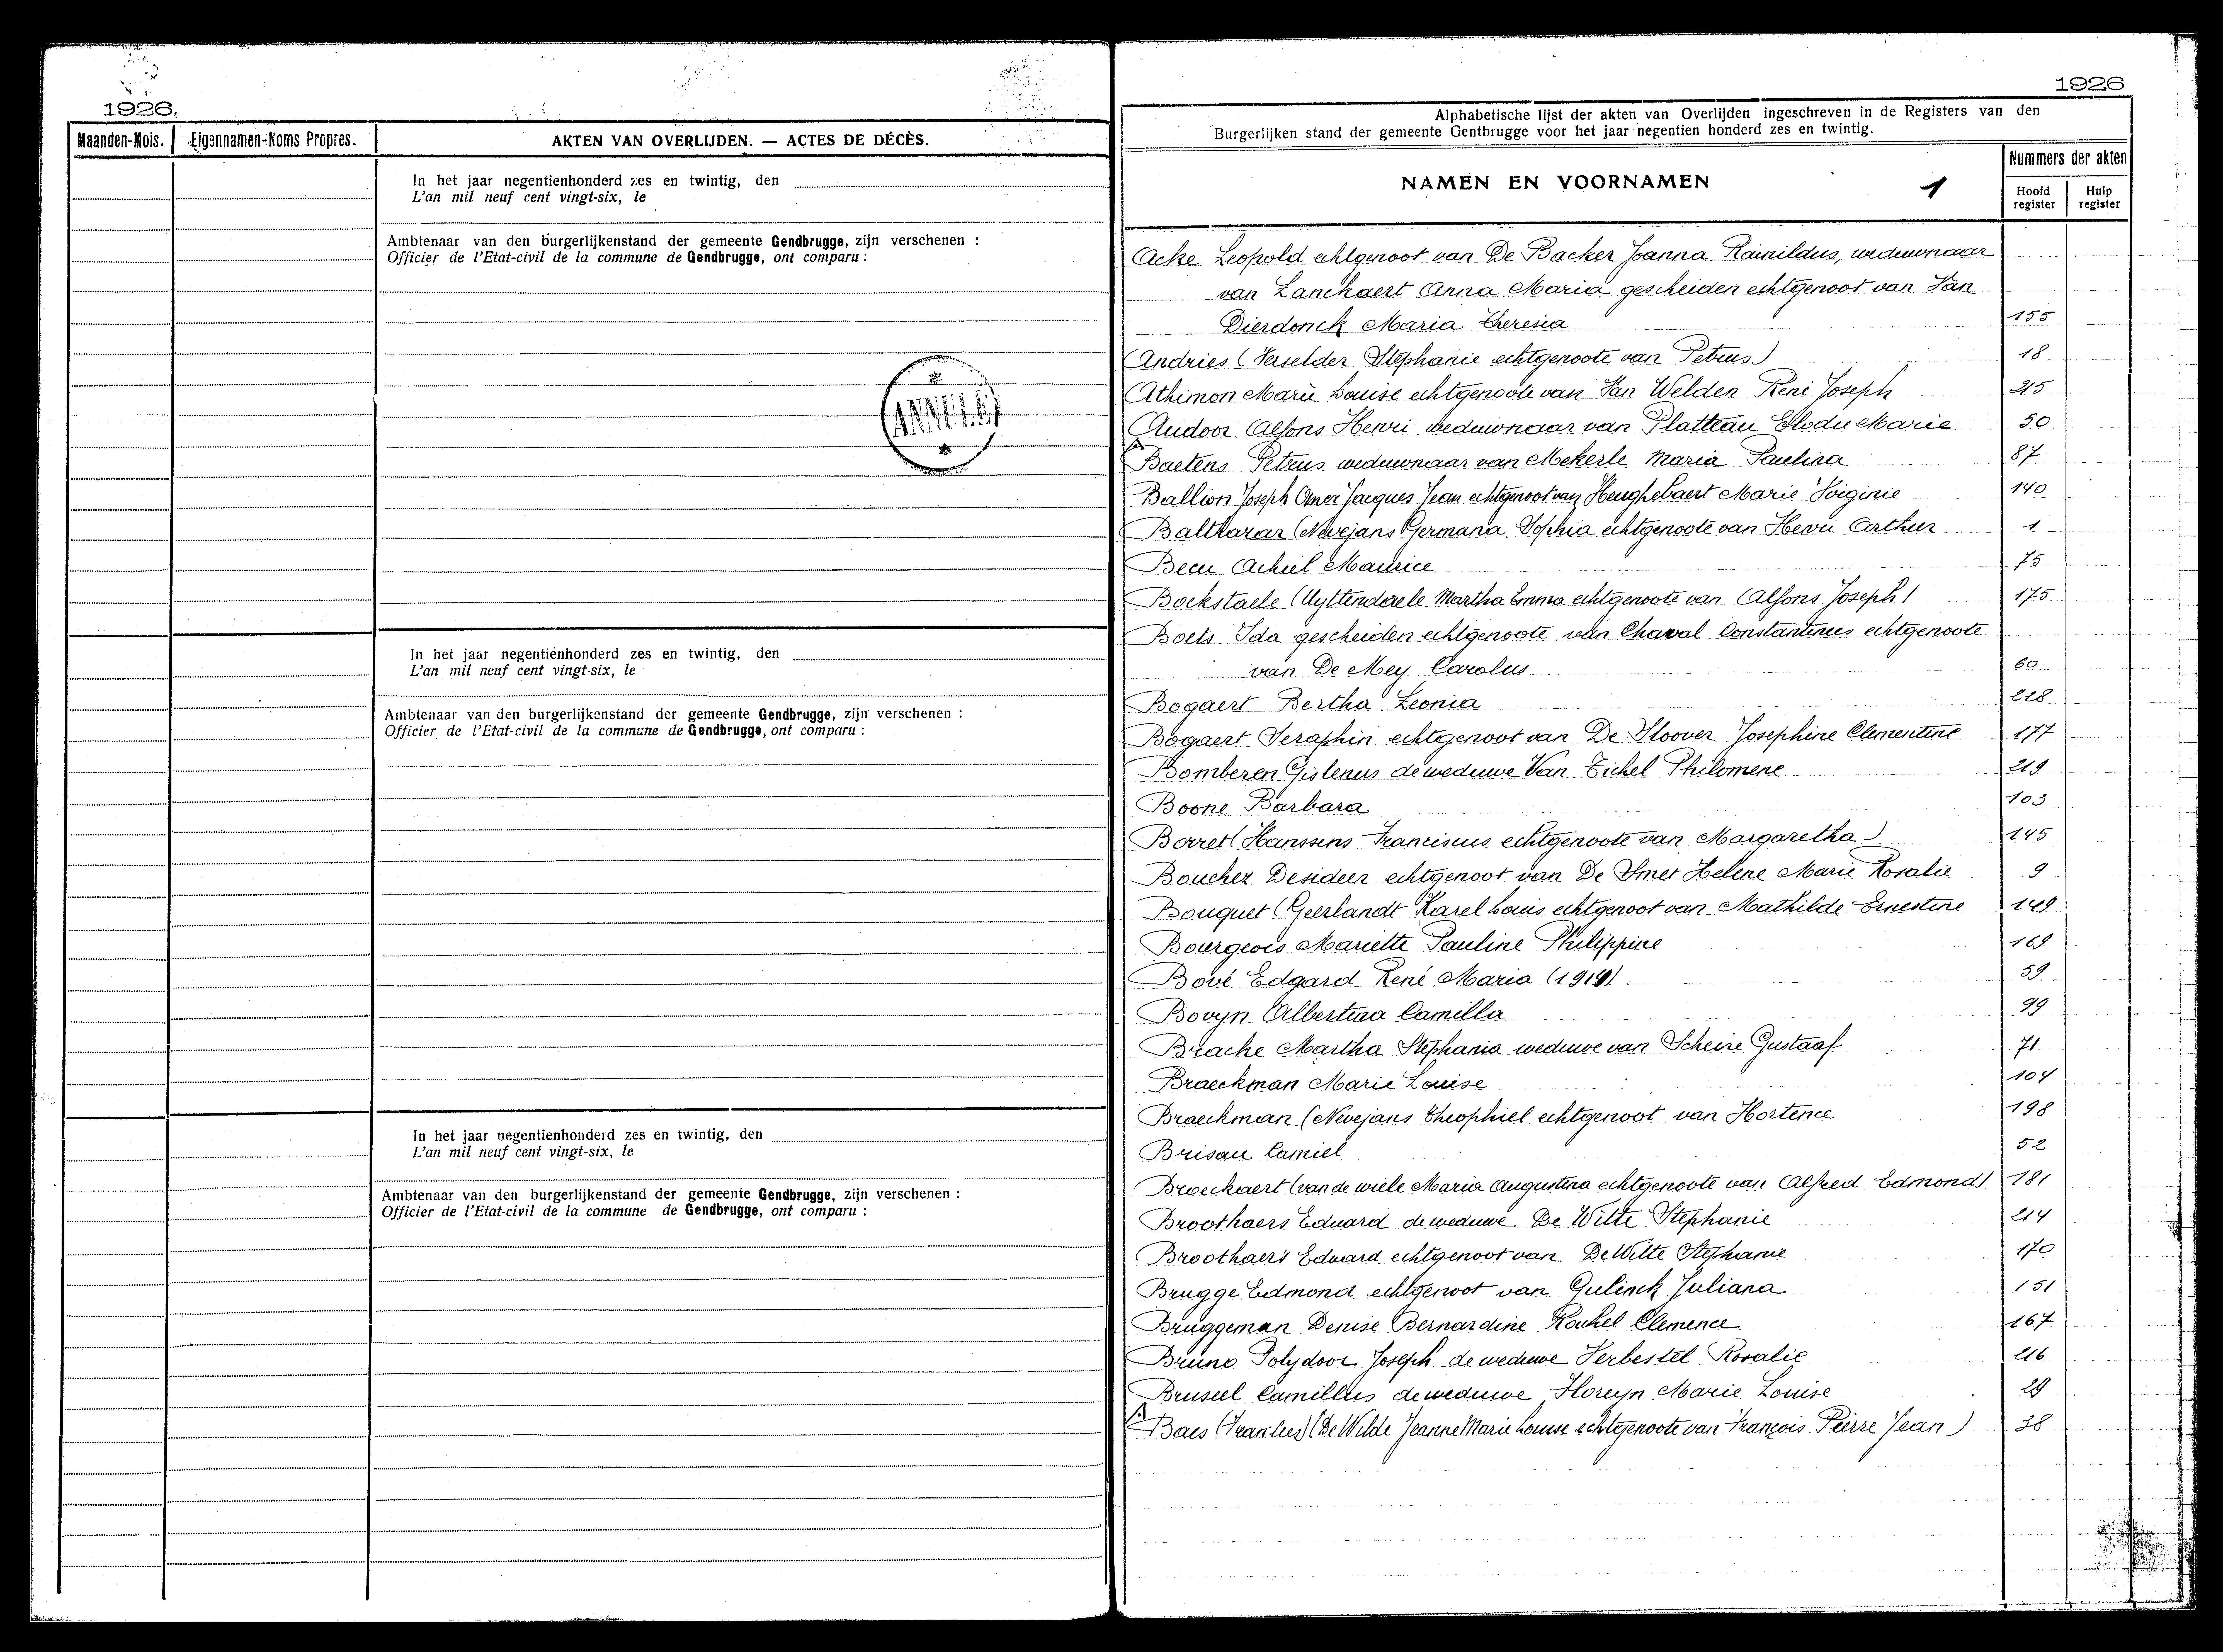 1926.
Maanden-Mois. Eigennamen-Noms Propres. AKTEN VAN OVERLIJDEN. — ACTES DE DÉCÈS.
In het jaar negentienhonderd zes en twintig, den
L'an mil neuf cent vingt-six, le
Ambtenaar van den burgerlijkenstand der gemeente Gendbrugge, zijn verschenen :
Officier de l'Etat-civil de la commune de Gendbrugge, ont comparu :
ANNULÉ
In het jaar negentienhonderd zes en twintig, den
L'an mil neuf cent vingt-six, le
Ambtenaar van den burgerlijkenstand der gemeente Gendbrugge, zijn verschenen :
Officier de l'Etat-civil de la commune de Gendbrugge, ont comparu :
In het jaar negentienhonderd zes en twintig, den
L'an mil neuf cent vingt-six, le
Ambtenaar van den burgerlijkenstand der gemeente Gendbrugge, zijn verschenen :
Officier de l'Etat-civil de la commune de Gendbrugge, ont comparu :
1926
Alphabetische lijst der akten van Overlijden ingeschreven in de Registers van den
Burgerlijken stand der gemeente Gentbrugge voor het jaar negentien honderd zes en twintig.
NAMEN EN VOORNAMEN 1
Nummers der akten
Hoofd register Hulp register
Acke Leopold echtgenoot van De Backer Joanna Rainildus, weduwnaar
van Lanckaert Anna Maria gescheiden echtgenoot van Van
Dierdonck Maria Theresia 155
Andries (Verselder Stephanie echtgenoote van Petrus) 18
Athimon Marie Louise echtgenoote van Van Welden René Joseph 215
Audoor Alfons Henri weduwnaar van Platteau Elodie Marie 50
Baetens Petrus weduwnaar van Mekerle Maria Paulina 87
Ballion Joseph Omer Jacques Jean echtgenoot van Heughebaert Marie Virginie 140
Balthazar (Nevejans Germana Sophia echtgenoote van Henri Arthur 1
Becu Achiel Maurice 75
Bockstaele (Uyttendaele Martha Emma echtgenoote van Alfons Joseph) 175
Boets Ida gescheiden echtgenoote van Chaval Constantinus echtgenoote
van De Mey Carolus 60
Bogaert Bertha Leonia 228
Bogaert Seraphin echtgenoot van De Hoover Josephine Clementine 177
Bomberen Gislenus de weduwe Van Eichel Philomene 219
Boone Barbara 103
Borret (Hanssens Franciscus echtgenoote van Margaretha) 145
Bouchez Desideer echtgenoot van De Smet Helene Marie Rosalie 9
Bouquet (Geerlandt Karel Louis echtgenoot van Mathilde Ernestine 149
Bourgeois Mariette Pauline Philippine 169
Bové Edgard René Maria (1914) 59
Bovyn Albertina Camilla 99
Bracke Martha Stephania weduwe van Scheire Gustaaf 71
Braeckman Marie Louise 104
Braeckman (Nevejans Theophiel echtgenoot van Hortence 198
Brisau Camiel 52
Broeckaert (van de wiele Maria Augustina echtgenoote van Alfred Edmond) 181
Broothaers Eduard de weduwe De Witte Stephanie 214
Broothaers Eduard echtgenoot van De Witte Stephanie 170
Brugge Edmond echtgenoot van Gulinck Juliana 151
Bruggeman Denise Bernardine Rachel Clemence 167
Bruno Polydoor Joseph de weduwe Verbestel Rosalie 216
Bruseel Camillus de weduwe Floreyn Marie Louise 29
Baes (De Wilde Jeanne Marie Louise echtgenoote van François Pierre Jean) 38